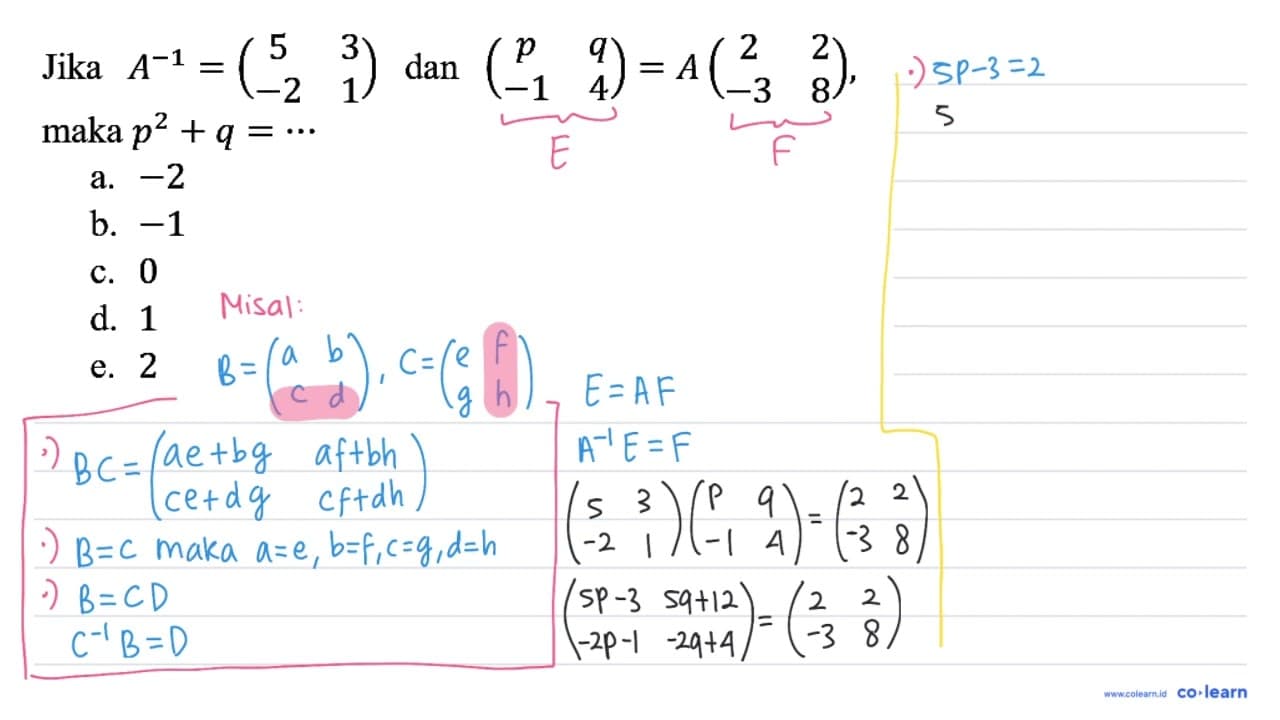 Jika A⁻¹ = (5 3 / -2 1) dan (p q / -1 4) = A (2 2 / -3 8),
E F
maka p² + q = ⋯
a. -2
b. -1
c. 0
d. 1
e. 2
Misal:
B = (a b / c d), C = (e f / g h)
·) BC = (ae+bg af+bh / ce+dg cf+dh)
·) B=C maka a=e, b=f, c=g, d=h
·) B=CD
C⁻¹B=D
E=AF
A⁻¹E=F
(5 3 / -2 1)(p q / -1 4) = (2 2 / -3 8)
(5p-3 5q+12 / -2p-1 -2q+4) = (2 2 / -3 8)
·) 5p-3=2
5
www.colearn.id co·learn